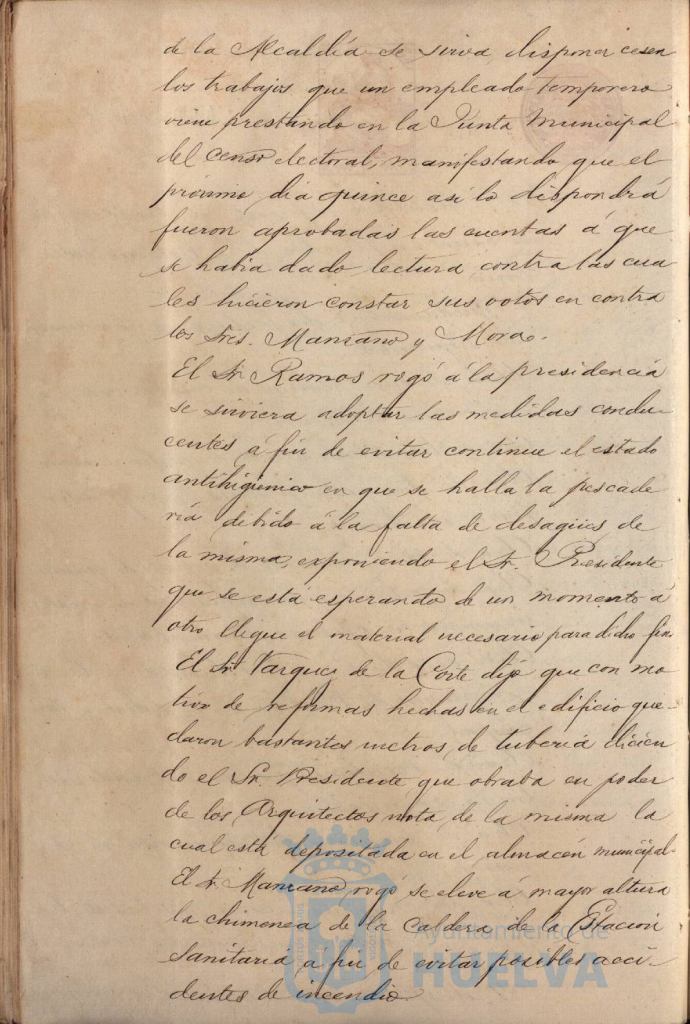 de la Alcaldía se sirva disponer cesen
los trabajos que un empleado temporero
viene prestando en la Junta Municipal
del censo electoral, manifestando que el
próximo dia quince asi lo dispondrá
fueron aprobadas las cuentas á que
se habia dado lectura contra las cua
les hicieron constar sus votos en contra
los Sres. Manzano y Mora.
El Sr. Ramos rogó á la presidencia
se sirviera adoptar las medidas condu-
centes á fin de evitar continue el estado
antihigienico en que se halla la pescade
ria debido á la falta de desagües de
la misma, exponiendo el Sr. Presidente
que se está esperando de un momento á
otro llegue el material necesario para dicho fin.
El Sr. Vazquez de la Corte dijo que con mo
tivo de reformas hechas en el edificio que-
daron bastantes metros de tuberia dicien
do el Sr. Presidente que obraba en poder
de los Arquitectos nota de la misma la
cual está depositada en el almacén municipal.
El Sr. Manzano rogó se eleve á mayor altura
la chimenea de la caldera de la Estación
Sanitaria á fin de evitar posibles acci-
dentes de incendio
Ayuntamiento de
HUELVA